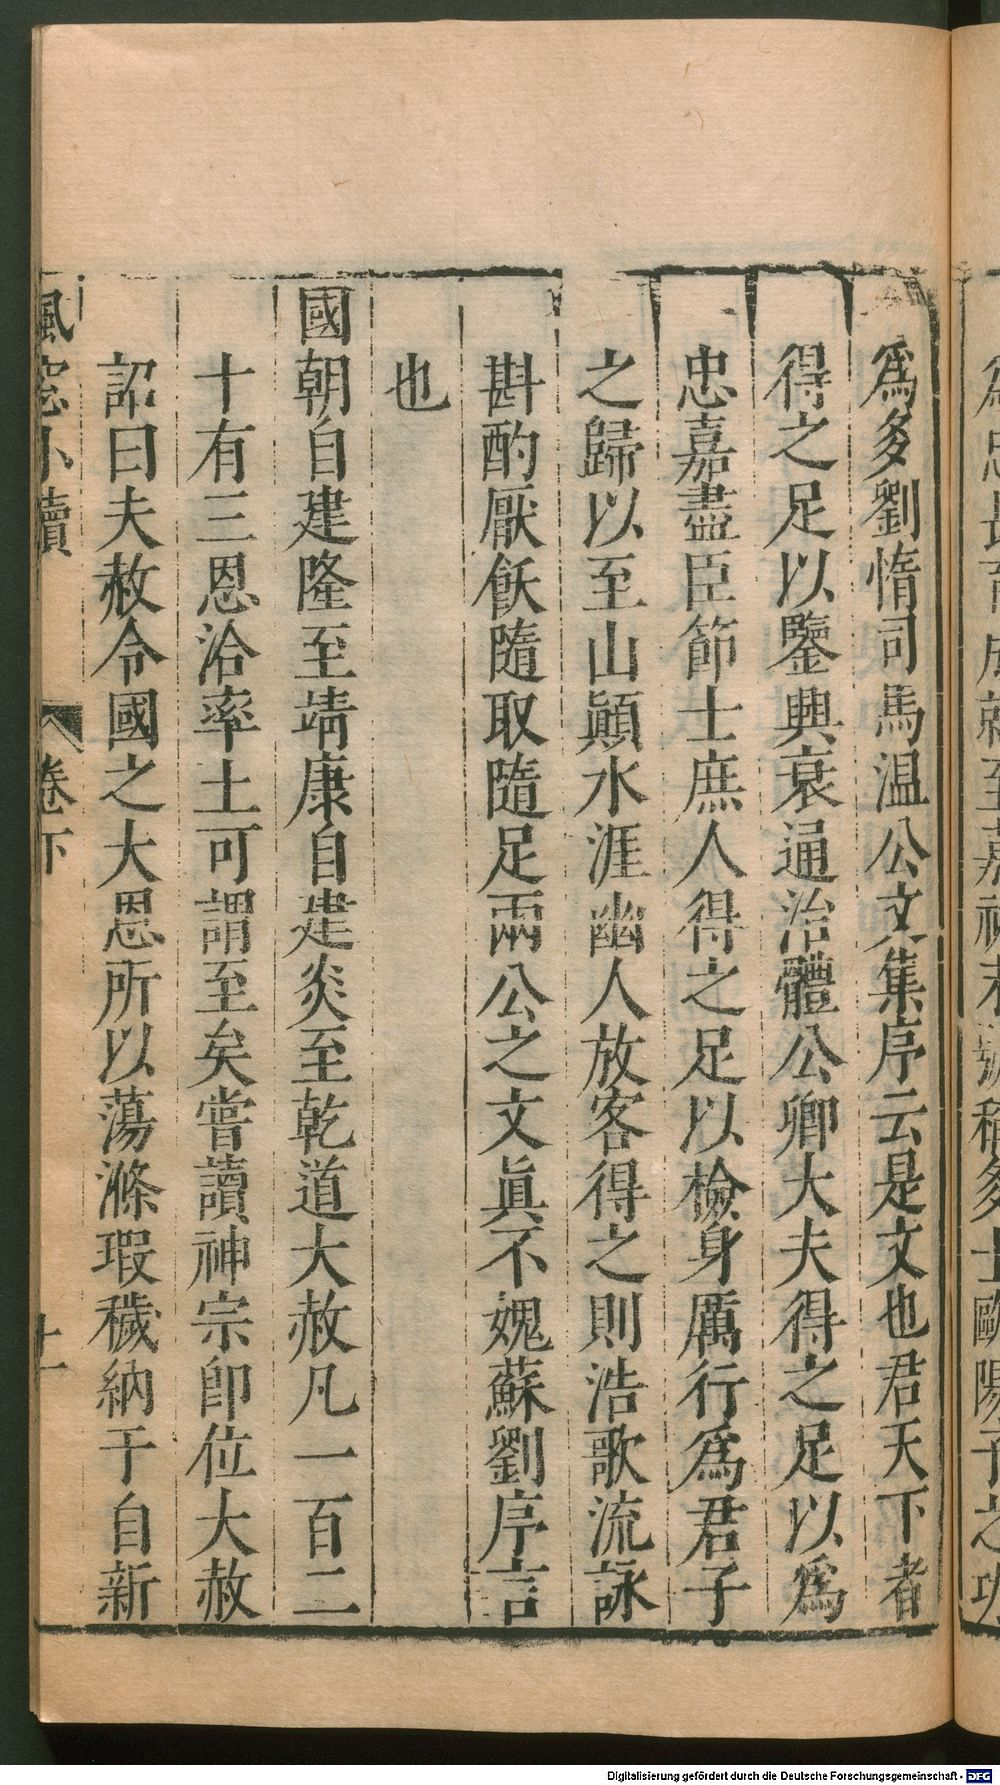 爲多劉惰司馬温公文集序云是文也君天下者
得之足以鑒興衰通治體公卿大夫得之足以爲
忠嘉盡臣節士庶人得之足以檢身厲行爲君子
之歸以至山顚水涯幽人放客得之則浩歌流詠
斟酌厭飫隨取隨足兩公之文眞不媿蘇劉序言
也
國朝自建隆至靖康自建炎至乾道大赦凡一百二
十有三恩洽率土可謂至矣嘗讀神宗卽位大赦
詔曰夫赦令國之大恩所以蕩滌瑕穢納于自新
楓窓小牘
卷下
十一
Digitalisierung gefördert durch die Deutsche Forschungsgemeinschaft - DFG